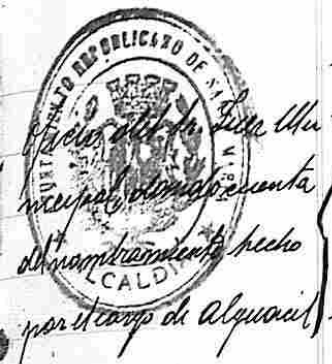 AYUNTAMIENTO REPUBLICANO DE SAN
ALCALDIA
Oficio del Sr. Juez Mu
nicipal, dando cuenta
del nombramiento hecho
por el cargo de Alguacil